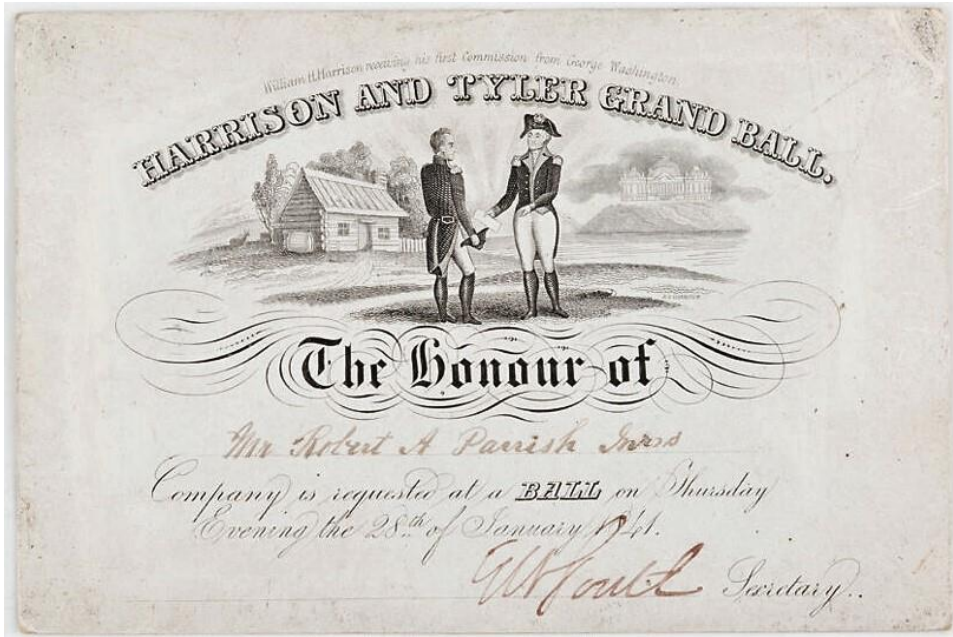 William H. Harrison receiving his first Commission from George Washington.
HARRISON AND TYLER GRAND BALL.
The Honour of
Mr Robert A Parrish
Company is requested at a BALL on Thursday
Evening the 28th of January 1841.
Secretary..